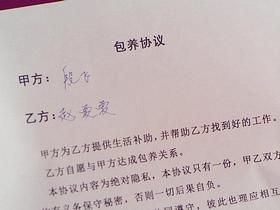 包养协议
甲方：段飞
乙方：赵爱爱
甲方为乙方提供生活补助，并帮助乙方找到好的工作。
乙方自愿与甲方达成包养关系。
本协议内容为绝对隐私，本协议只有一份，甲乙双方
有义务保守秘密，否则一切后果自负。
同遵守，彼此也理应相互